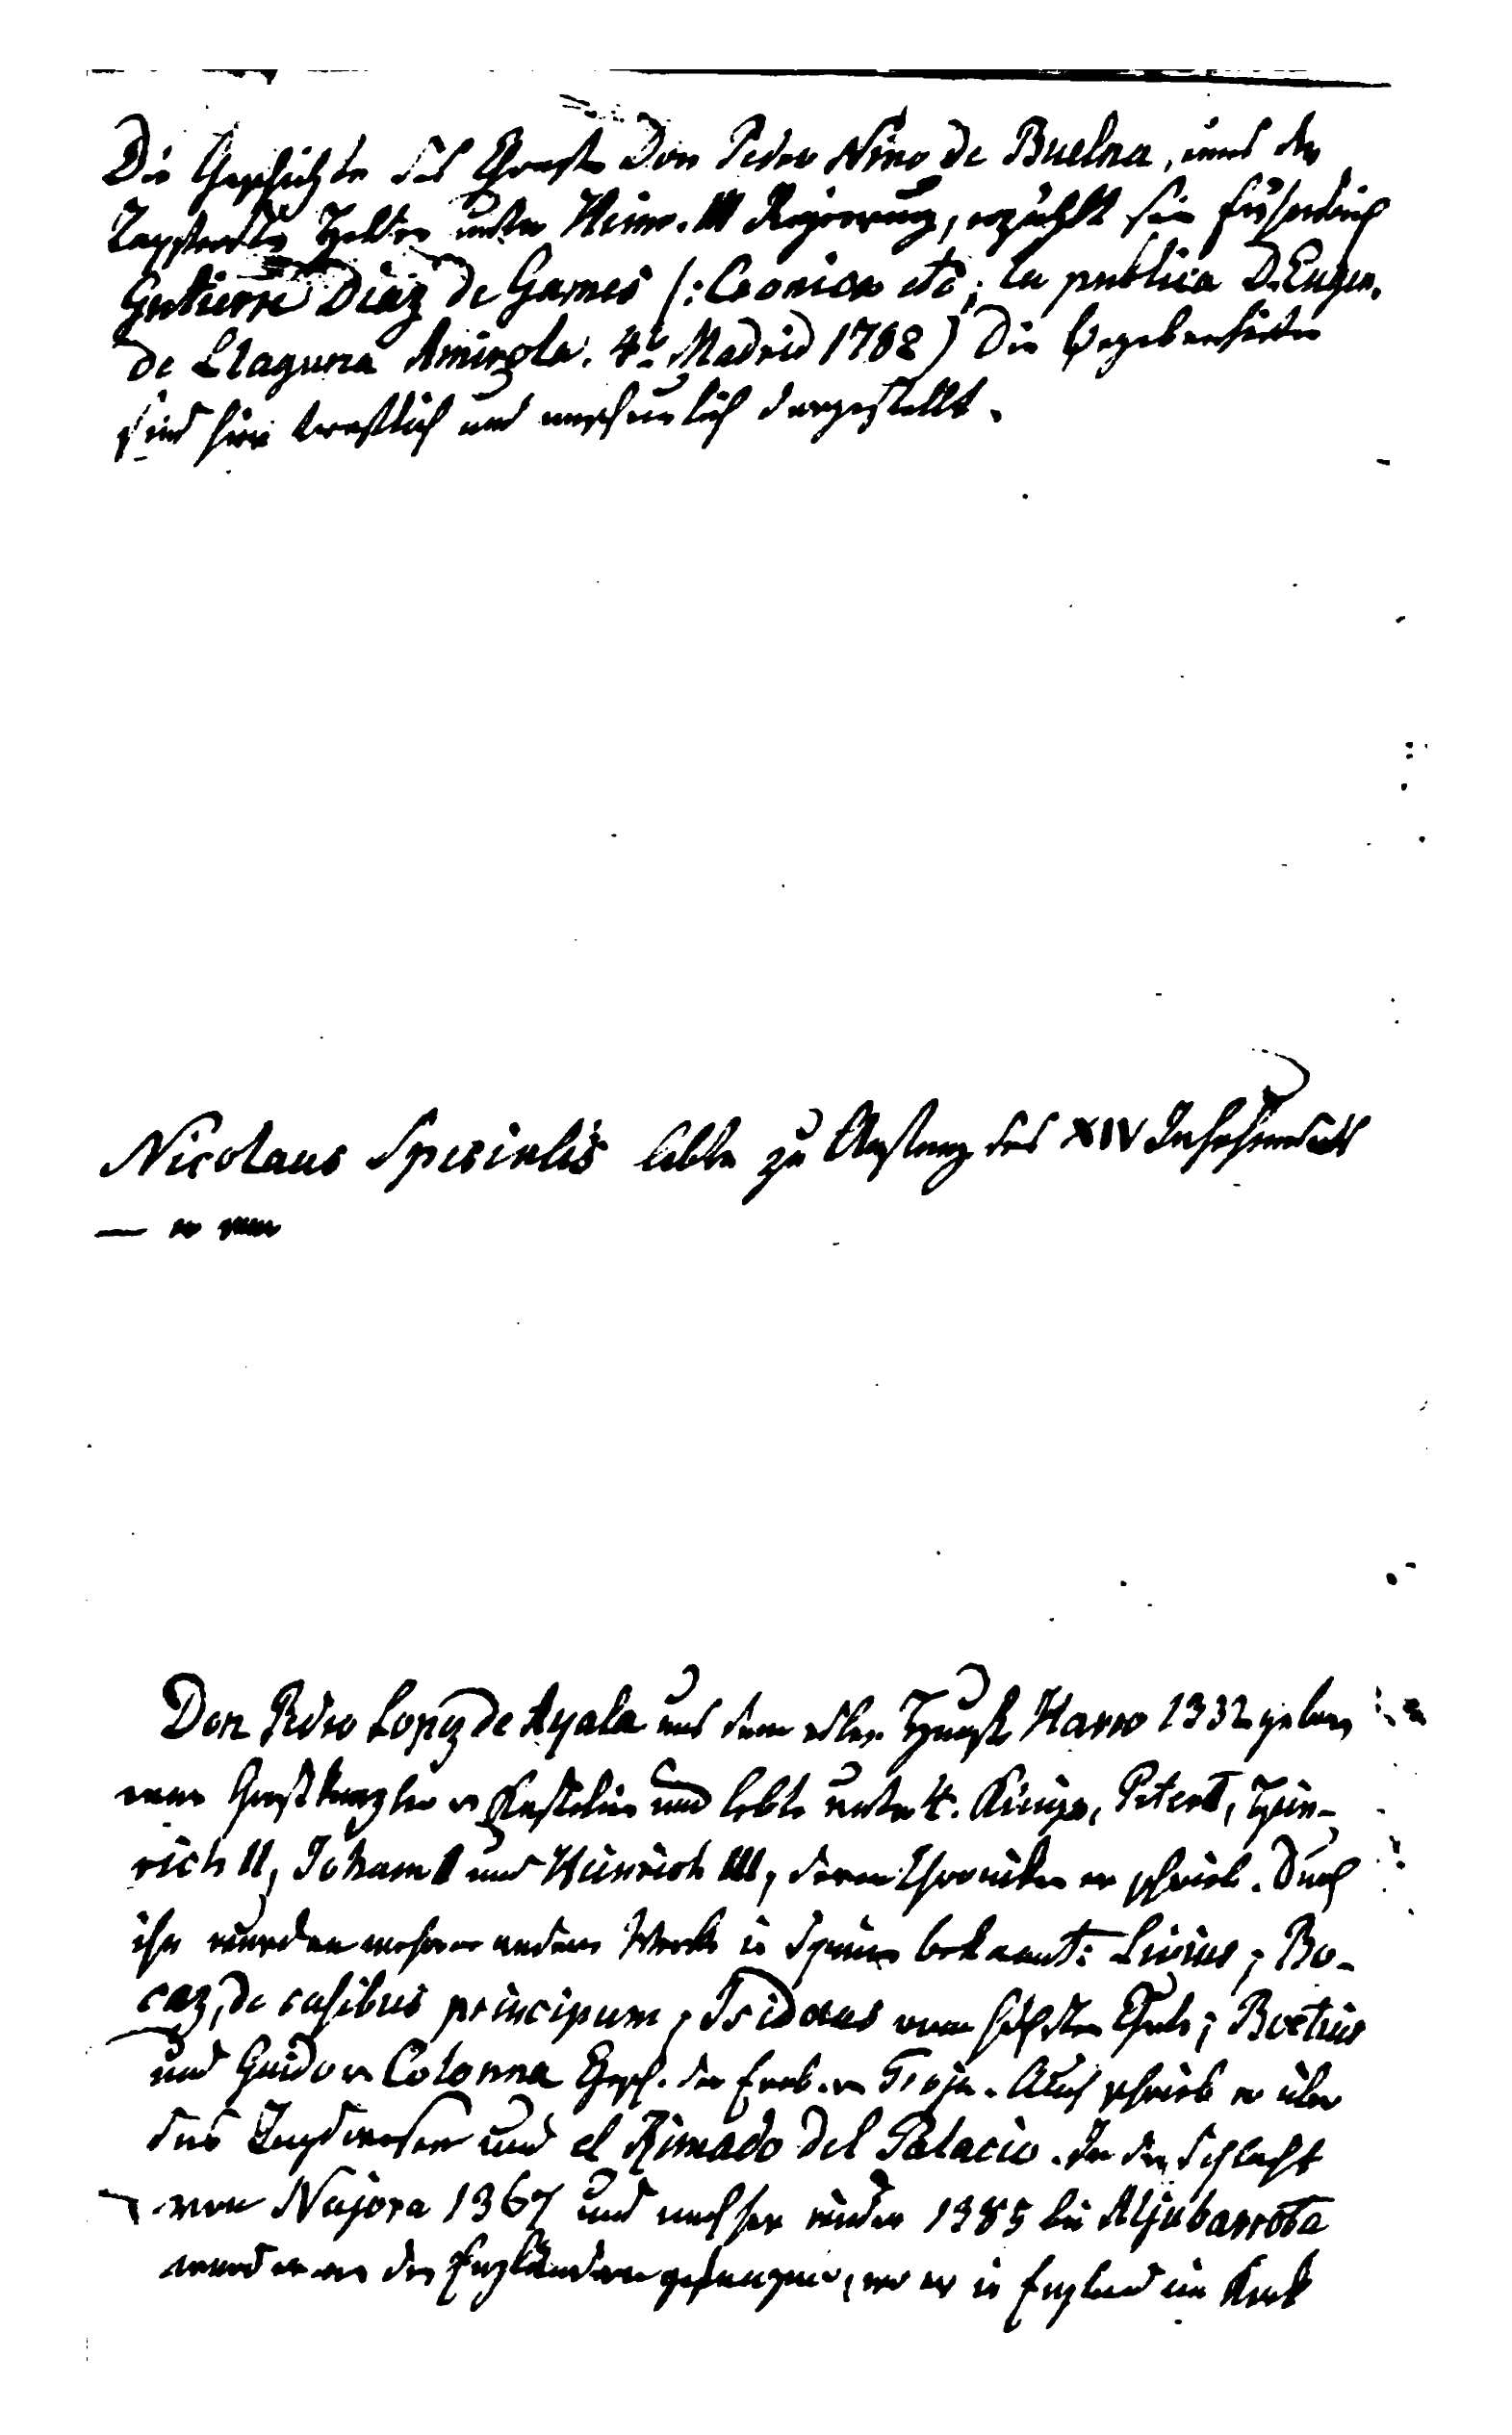 Die Geschichte des Grafen Don Pedro Nino de Buelna, eines der
Tapfersten Helden unter Heinr. III Regierung, erzählt sein Fähndrich
Gutierre Diaz de Games (: Cronica etc; la publica D. Eugen.
de Llaguna Amirola. 4º Madrid 1782) Die Begebenheiten
sind hier trefflich und anschaulich dargestellt.
Nicolaus Specialis lebte zu Anfang des XIV Jahrhunderts
— er war
Don Pedro Lopez de Ayala aus dem edlen Hause Harro 1332 geboren
war Großkanzler v Kastilien und lebte unter 4. Königen, Peter I, Hein-
rich II, Johann I und Heinrich III, deren Chroniken er schrieb. Durch
ihn wurden mehrere andere Werke in Spanien bekannt: Livius; Bo-
caz, de casibus principum; Isidorus vom höchsten Gute; Boetius
und Guido v. Colonna Gesch. der Erob. v. Troja. Auch schrieb er über
das Jagdwesen und el Rimado del Palacio. In der Schlacht
von Najera 1367 und nachher wieder 1385 bei Aljubarrota
ward er von den Engländern gefangen, wo er in England im Kerk